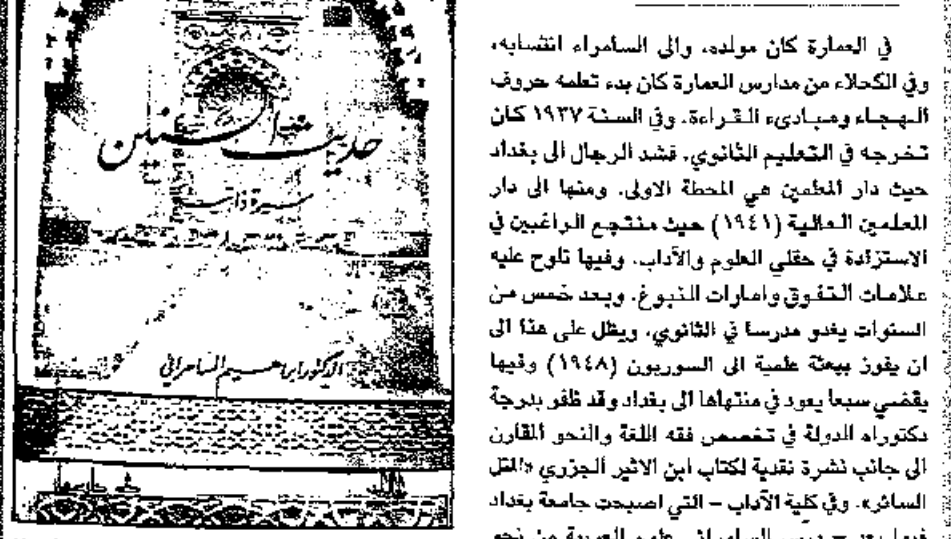 في العمارة كان مولده، والى السامراء انتسابه،
وفي الكحلاء من مدارس العمارة كان بدء تعلمه حروف
الهجاء ومبادىء القراءة. وفي السنة ١٩٣٧ كان
تخرجه في التعليم الثانوي، فشد الرحال الى بغداد
حيث دار المعلمين هي المحطة الاولى. ومنها الى دار
المعلمين العالية (١٩٤١) حيث منتجع الراغبين في
الاستزادة في حقلي العلوم والآداب. وفيها تلوح عليه
علامات التفوق وامارات النبوغ. وبعد خمس من
السنوات يغدو مدرسا في الثانوي، ويظل على هذا الى
ان يفوز ببعثة علمية الى السوربون (١٩٤٨) وفيها
يقضي سبعا يعود في منتهاها الى بغداد وقد ظفر بدرجة
دكتوراه الدولة في تخصص فقه اللغة والنحو المقارن
الى جانب نشرة نقدية لكتاب ابن الاثير الجزري «المثل
السائر». وفي كلية الآداب – التي اصبحت جامعة بغداد
فيما بعد – درس السامرائي علوم العربية من نحو
حديث السنين
سيرة ذاتية
الدكتور ابراهيم السامرائي